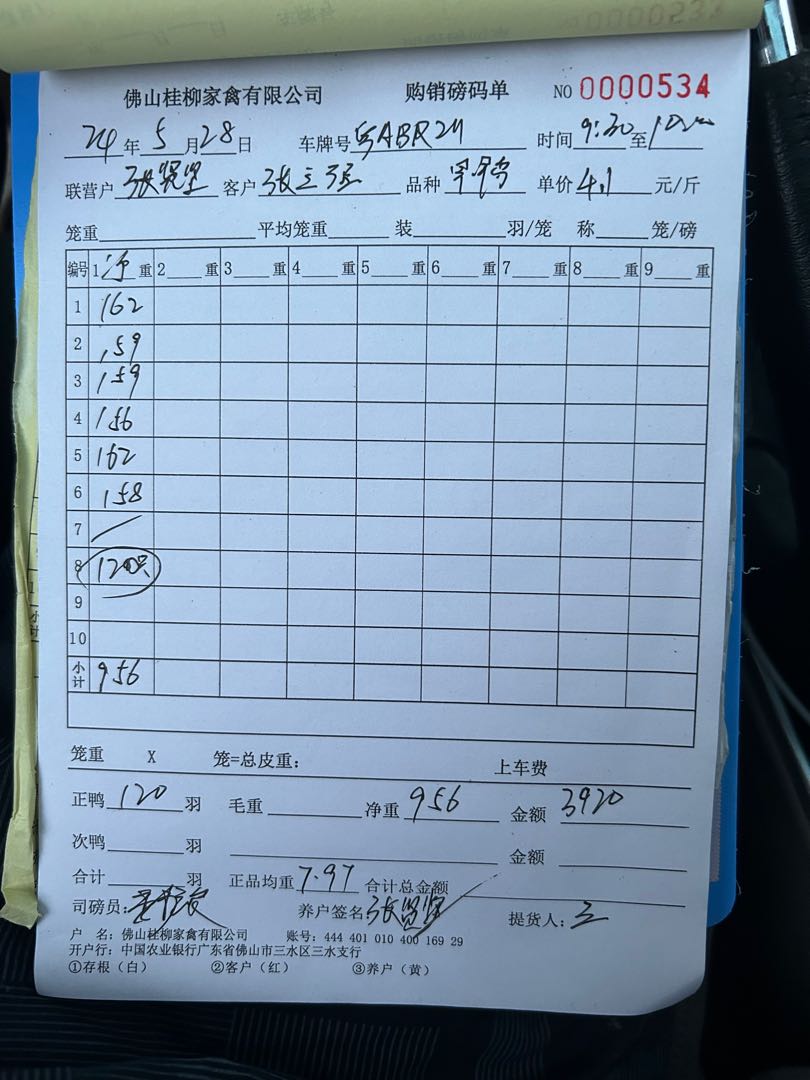 0000233
佛山桂柳家禽有限公司 购销磅码单 NO 0000534
24年5月28日 车牌号 ABR211 时间9:30至
联营户张贤坚 客户张三强 品种 单价4.1元/斤
笼重 平均笼重 装 羽/笼 称 笼/磅
编号 1净重 2 重 3 重 4 重 5 重 6 重 7 重 8 重 9 重
1 162
2 159
3 159
4 156
5 162
6 158
7 /
8 120只
9
10
小计 956
笼重 X 笼=总皮重: 上车费
正鸭120羽 毛重 净重956 金额3920
次鸭 羽 金额
合计 羽 正品均重7.97 合计总金额
司磅员: 养户签名张贤坚 提货人:
户 名: 佛山桂柳家禽有限公司 账号: 444 401 010 400 169 29
开户行: 中国农业银行广东省佛山市三水区三水支行
①存根（白） ②客户（红） ③养户（黄）